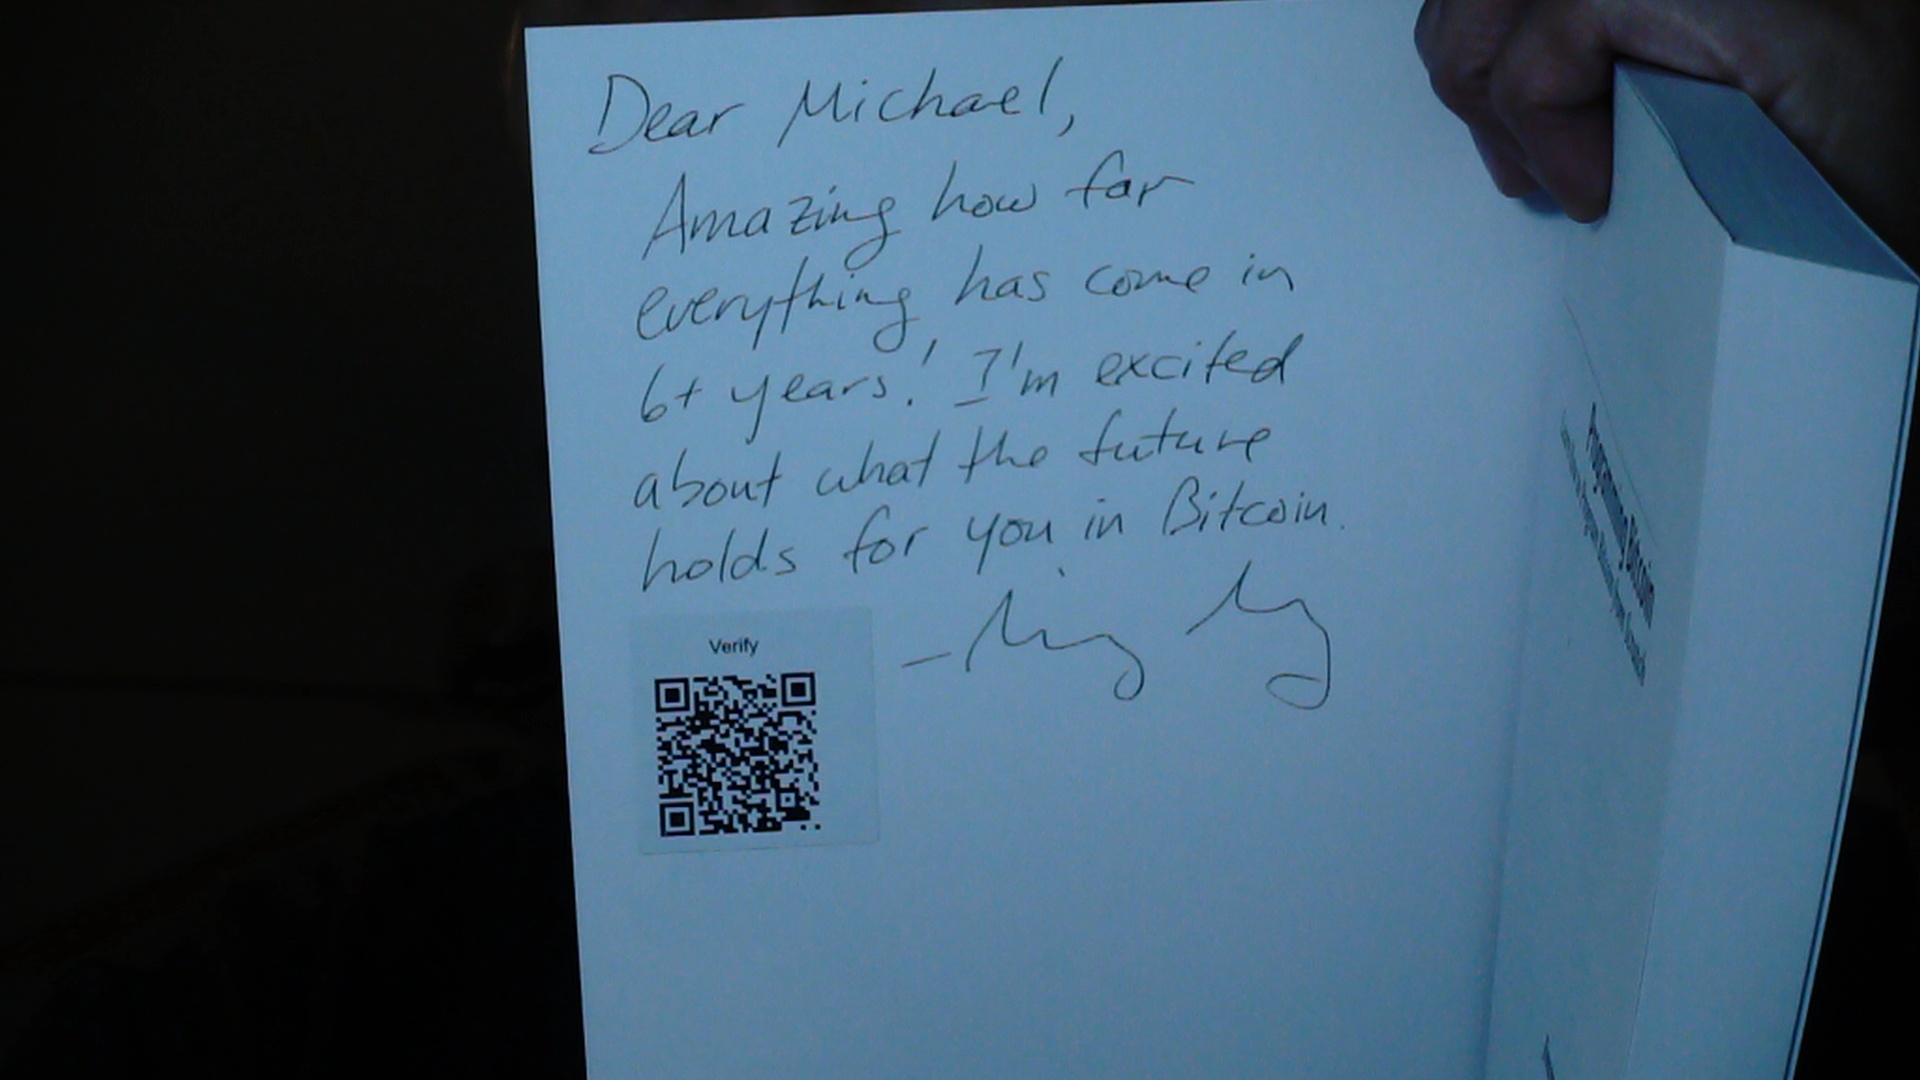 Dear Michael,
Amazing how far
everything has come in
6+ years! I'm excited
about what the future
holds for you in Bitcoin.
Verify
Programming Bitcoin